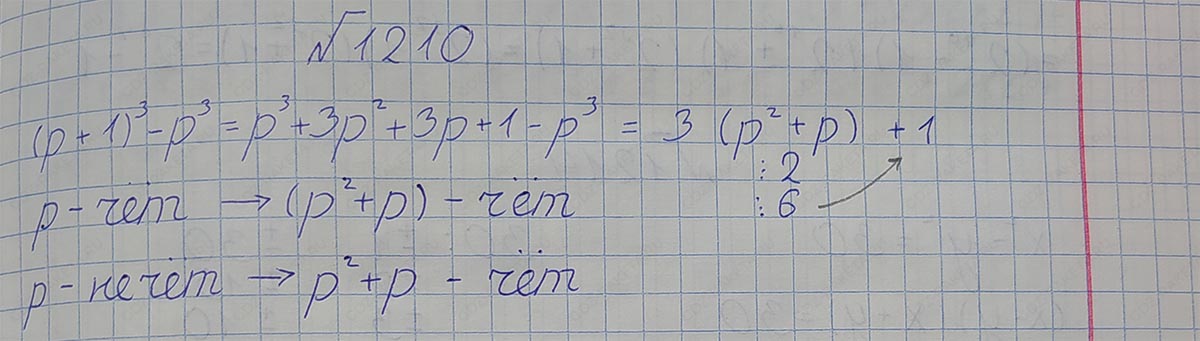 √1210
(p + 1)³ - p³ = p³ + 3p² + 3p + 1 - p³ = 3 (p² + p) + 1
⋮ 2
p - чёт → (p² + p) - чёт ⋮ 6
p - нечёт → p² + p - чёт